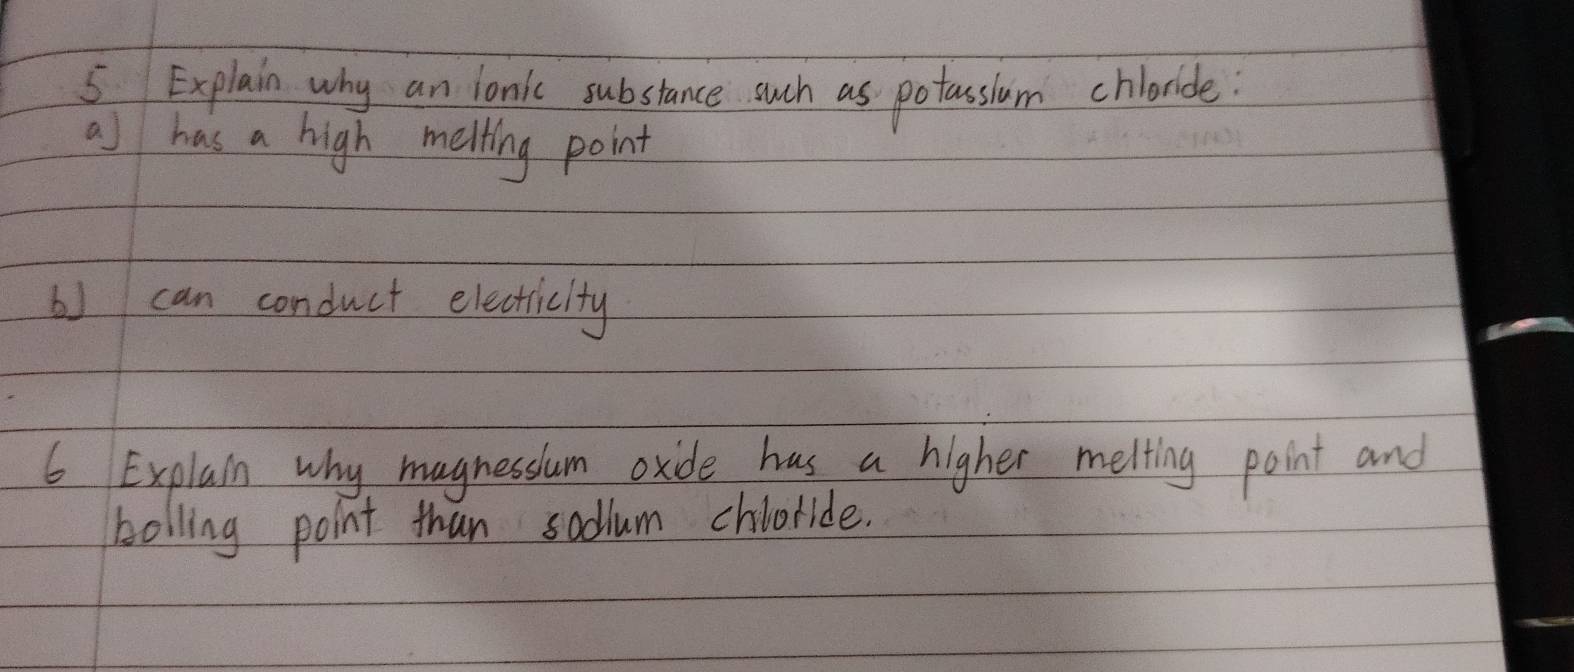 5 Explain why an ionic substance such as potassium chloride:
a) has a high melting point
b) can conduct electricity
6 Explain why magnessium oxide has a higher melting point and
boiling point than sodium chloride.